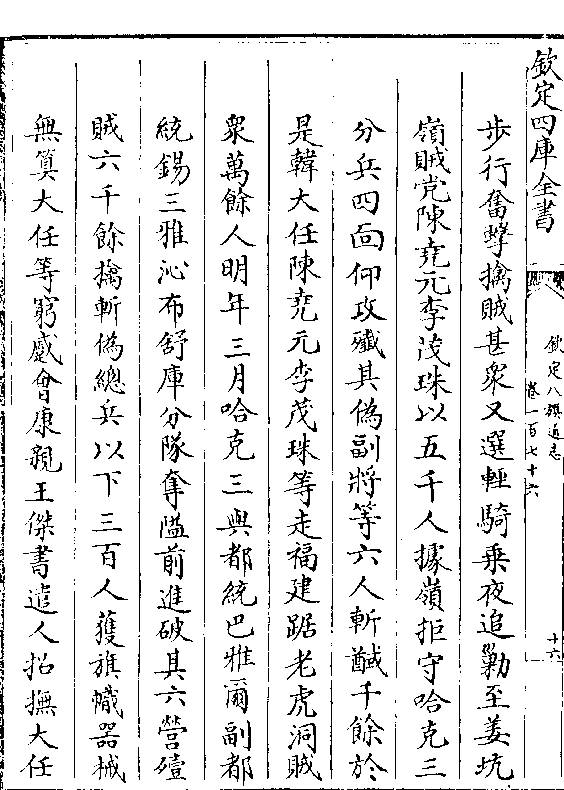 欽定四庫全書
欽定八旗通志
卷一百七十六
十六
步行奮擊擒賊甚衆又選輕騎乗夜追勦至姜坑
嶺賊党陳堯元李茂珠以五千人據嶺拒守哈克三
分兵四面仰攻殲其偽副將等六人斬馘千餘於
是韓大任陳堯元李茂珠等走福建踞老虎洞賊
衆萬餘人明年三月哈克三與都統巴雅爾副都
統錫三雅沁布舒庫分隊奪隘前進破其六營殪
賊六千餘擒斬偽總兵以下三百人獲旗幟器械
無算大任等窮蹙會康親王傑書遣人招撫大任